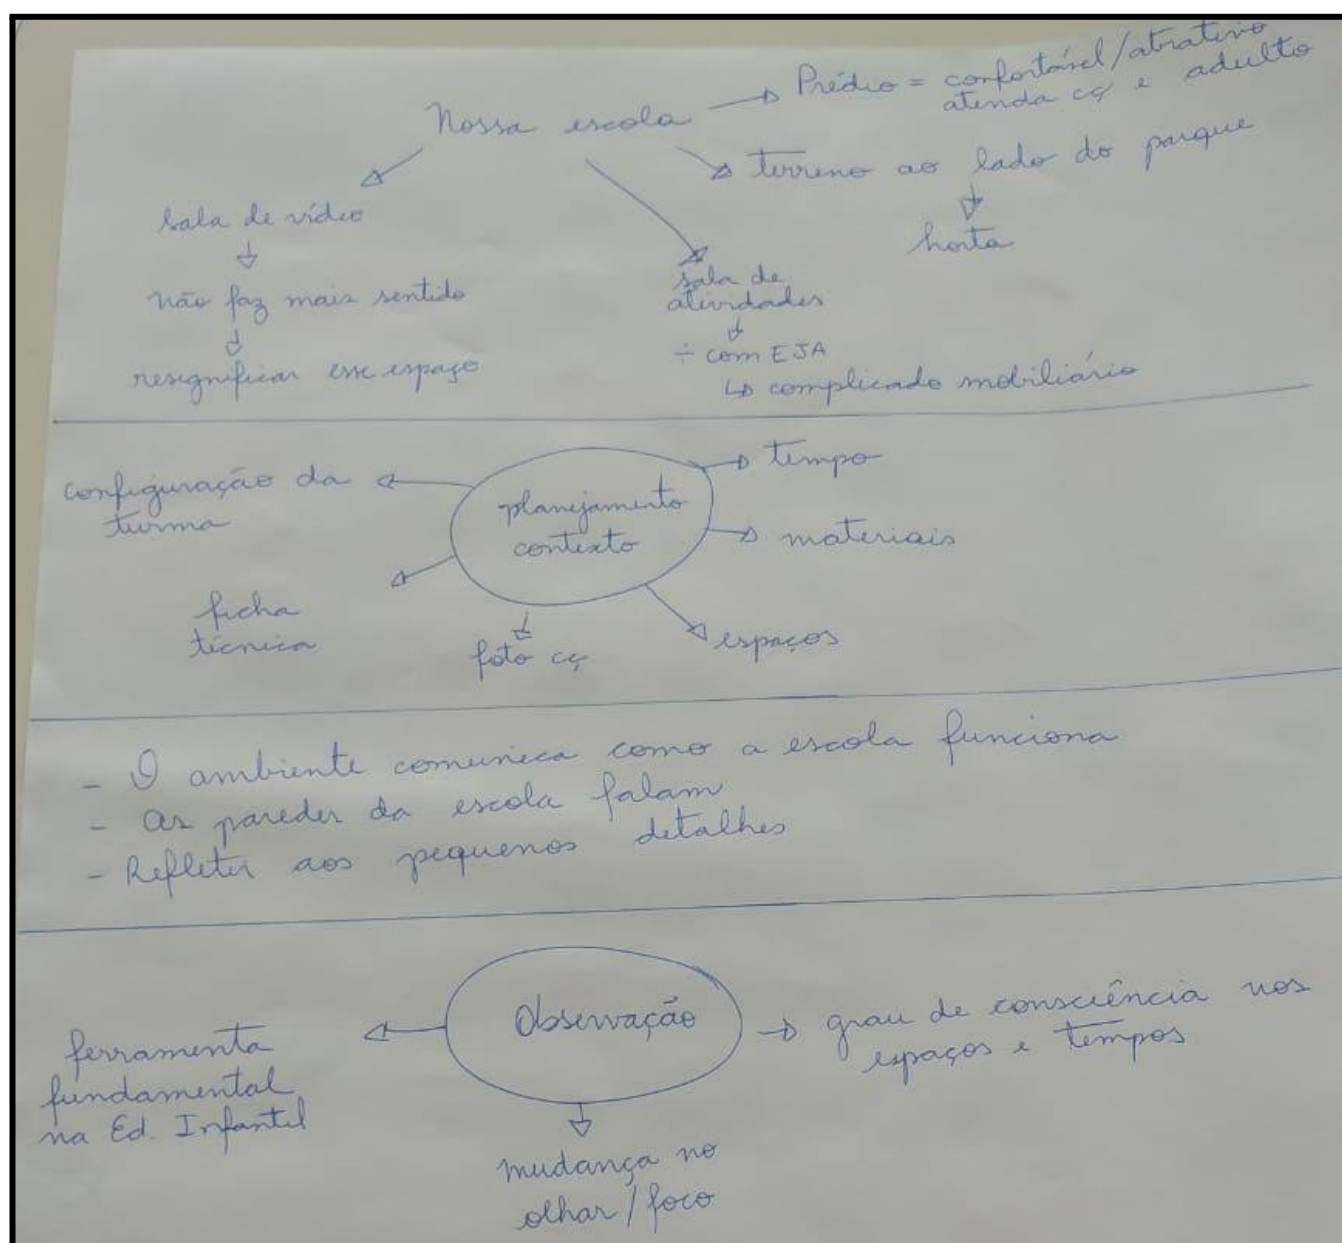 Nossa escola
→ Prédio = confortável/atrativo
atenda cç e adulto
→ terreno ao lado do parque
↓
horta
sala de vídeo
↓
não faz mais sentido
↓
resignificar esse espaço
sala de
atividades
↓
÷ com EJA
↳ complicado mobiliário
planejamento
contexto
configuração da
turma
ficha
técnica
foto cç
espaços
→ materiais
→ tempo
- O ambiente comunica como a escola funciona
- As paredes da escola falam
- Refletir aos pequenos detalhes
Observação
ferramenta
fundamental
na Ed. Infantil
mudança no
olhar/foco
→ grau de consciência nos
espaços e tempos